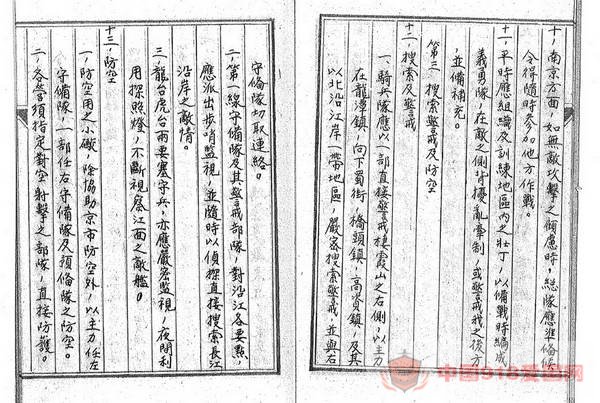 十、南京方面，如無敵攻擊之傾慮時，總隊應準備候
令得隨時參加他方作戰。
十一、平時應組織及訓練地區內之壯丁，以備戰時編成
義勇隊，在敵之側背擾亂牽制，或警戒我之後方
，並備補充。
第三、搜索及警戒及防空
十二、搜索及警戒
一、騎兵隊應以一部直接警戒棲霞山之右側，以主力
在龍潭鎮，向下蜀街，橋頭鎮，高資鎮，及其
以北沿江岸一帶地區，嚴密搜索警戒，並與右
守備隊切取連絡。
二、第一線守備隊及其警戒部隊，對沿江各要點，
應派出步哨監視，並隨時以偵探直接搜索長江
沿岸之敵情。
三、龍台虎台兩要塞守兵，亦應嚴密監視，夜間利
用探照燈，不斷視察江面之敵艦。
十三、防空
一、防空用之小礮，除協助京市防空外，以主力任左
守備隊，一部任右守備隊及預備隊之防空。
二、各營須指定對空射擊之部隊，直接防護。
中国918爱国网